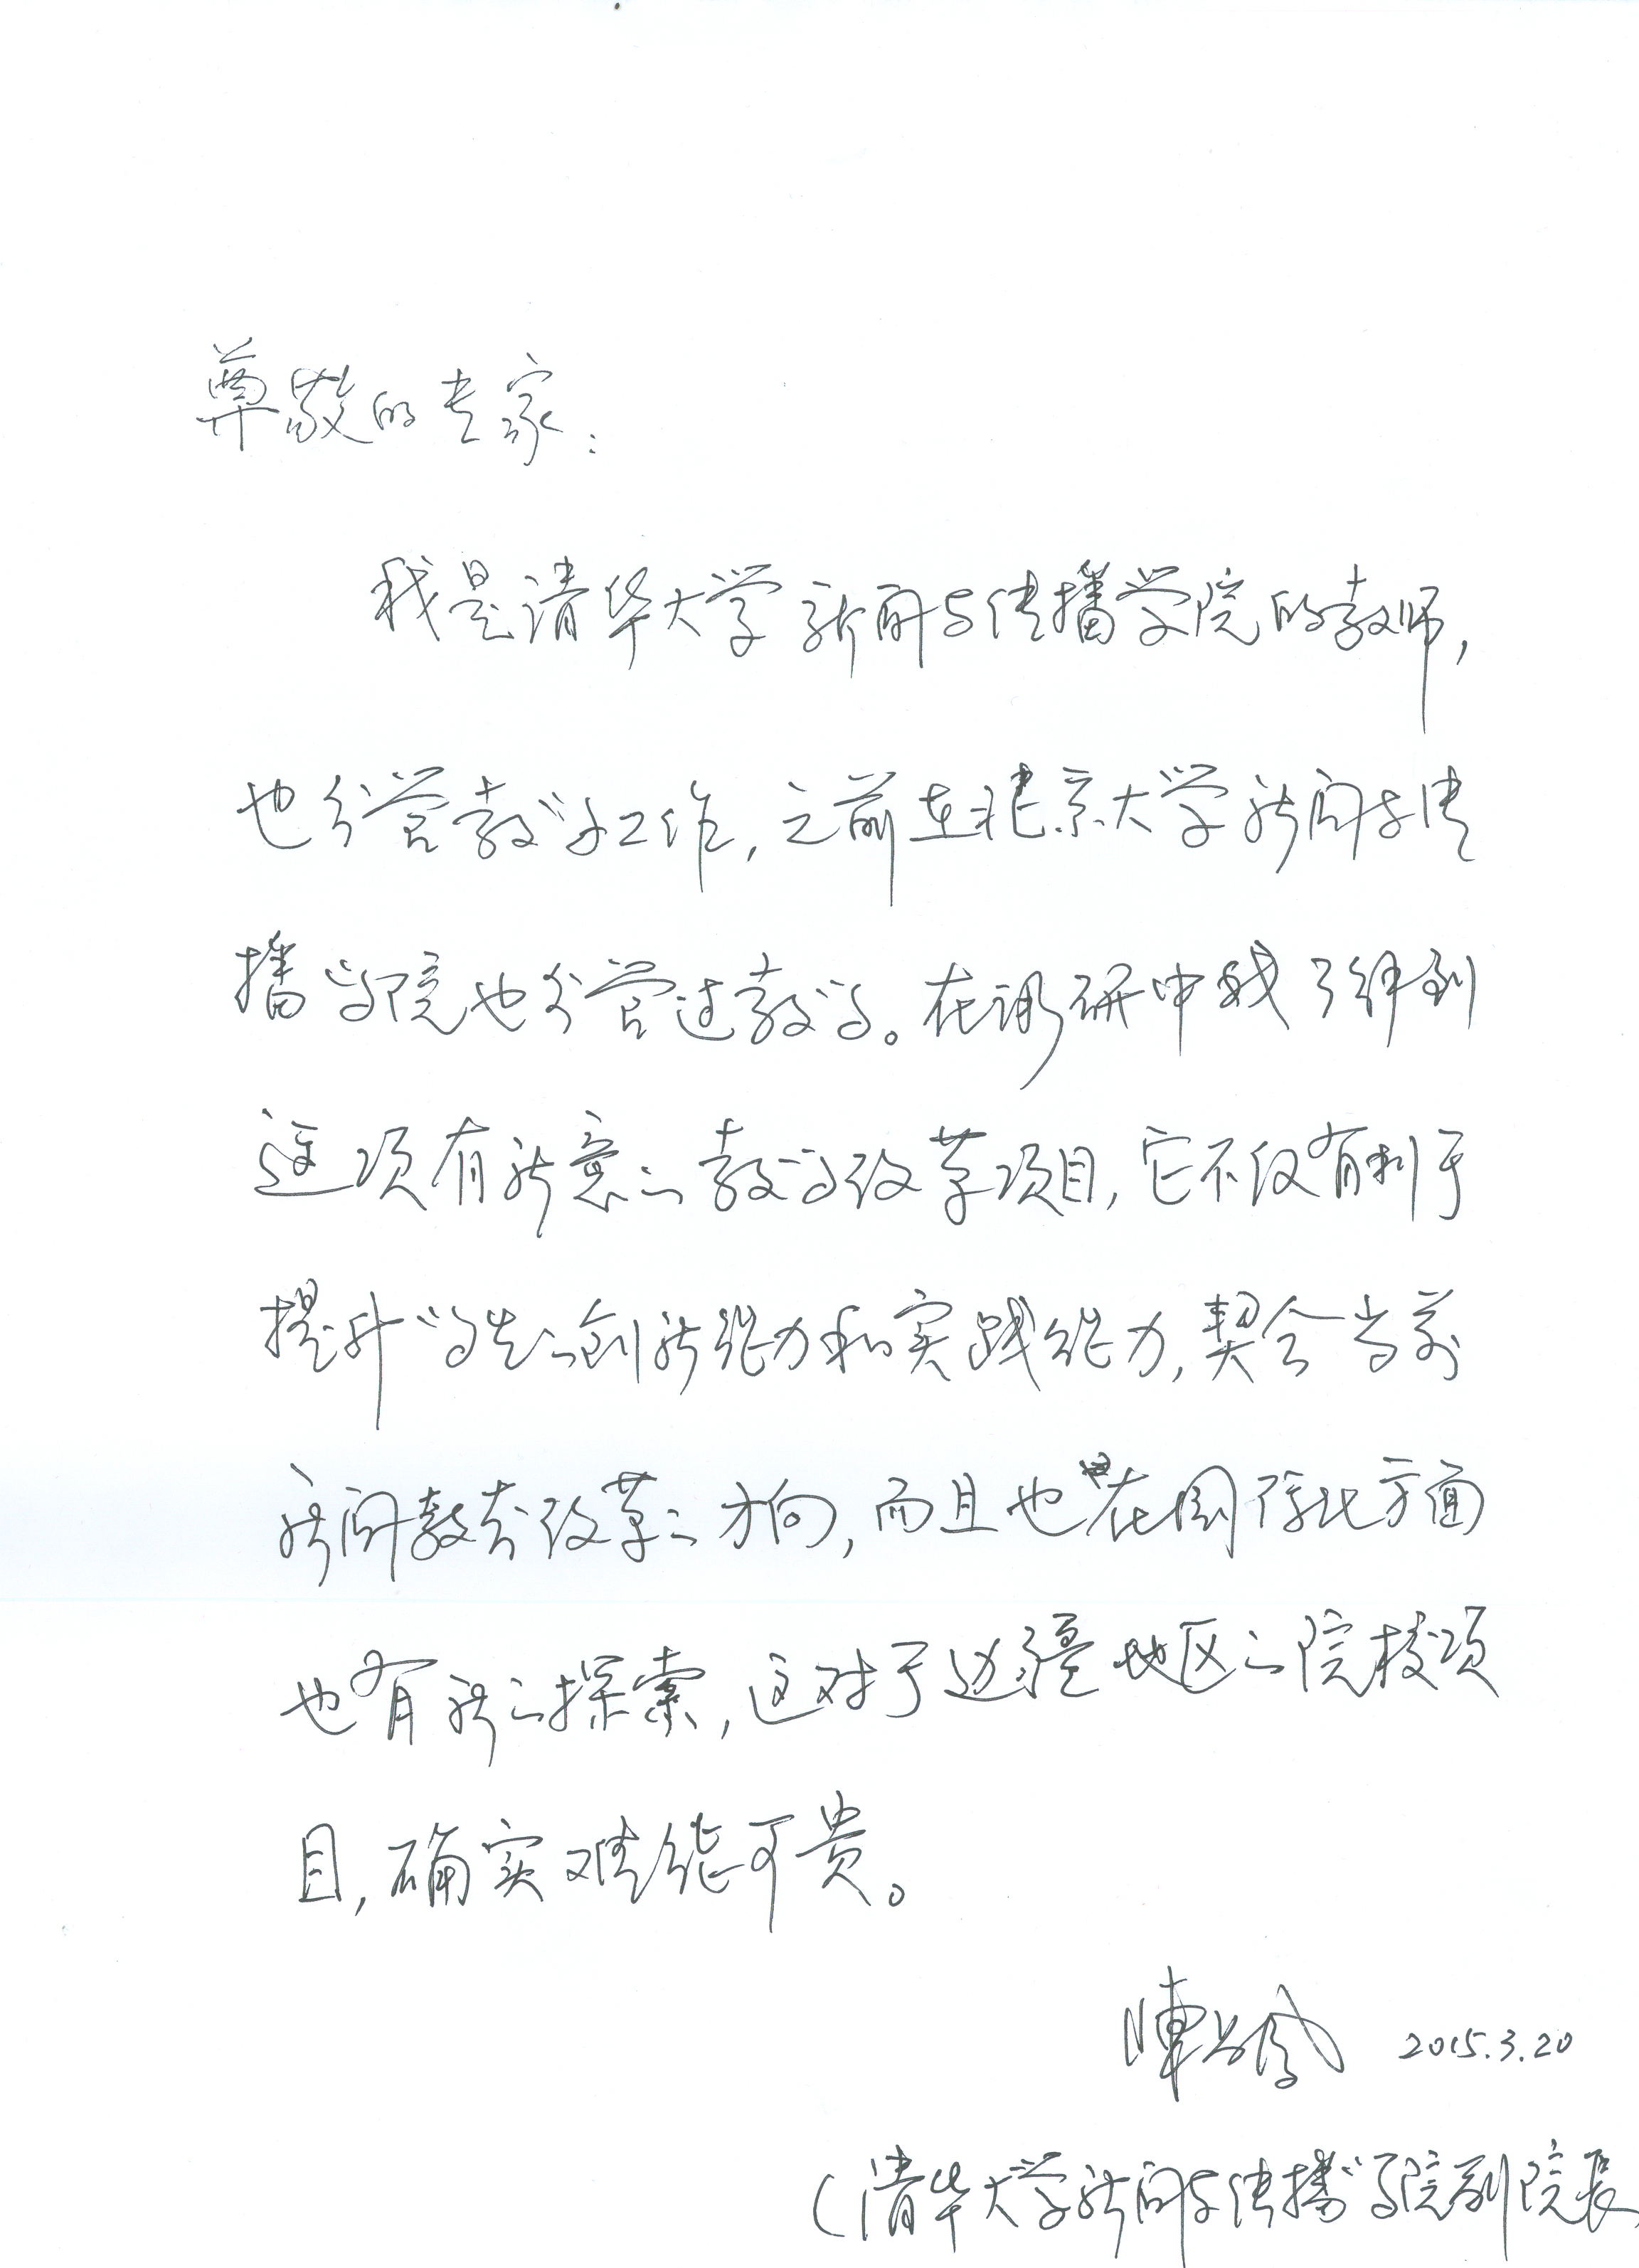 尊敬的专家：
我是清华大学新闻与传播学院的教师，
也分管教学工作，之前在北京大学新闻与传
播学院也分管过教学。在调研中我了解到
这项有新意的教学改革项目，它不仅有利于
提升学生的创新能力和实践能力，契合当前
新闻教育改革的方向，而且也在国际化方面
也有新的探索，这对于边疆地区的院校项
目，确实难能可贵。
陳昌凤 2015.3.20
（清华大学新闻与传播学院副院长